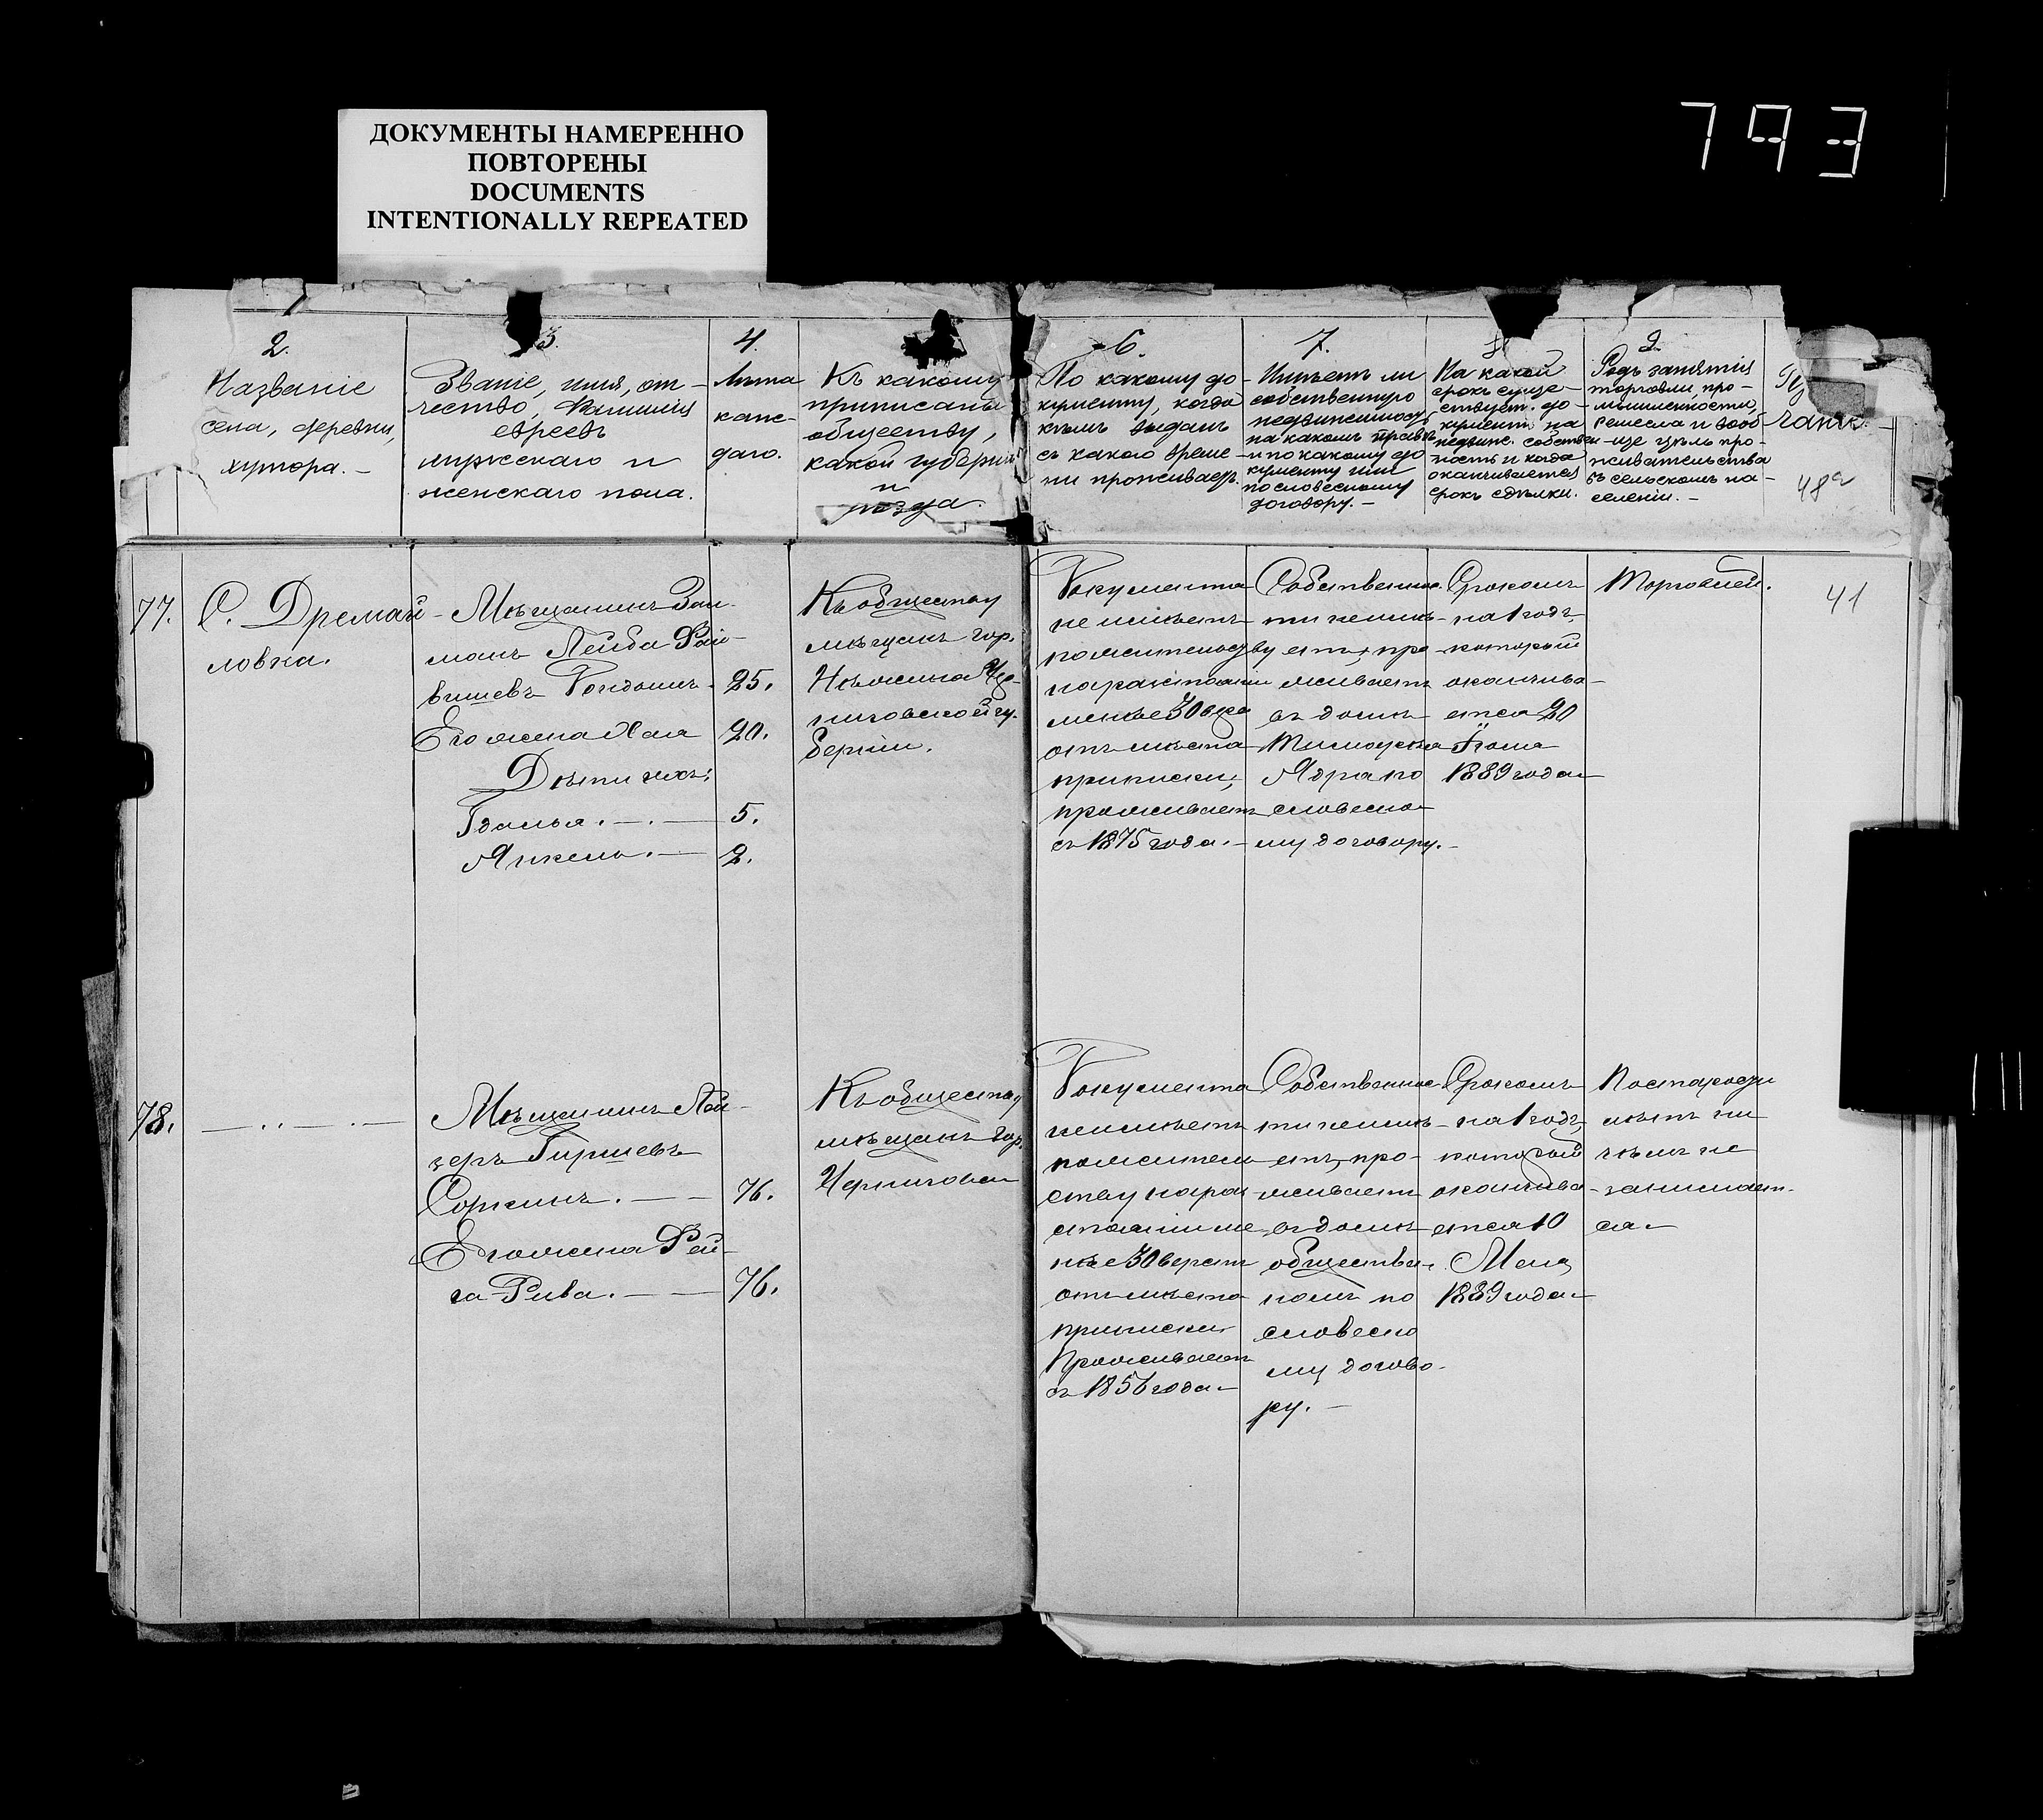 ДОКУМЕНТЫ НАМЕРЕННО
ПОВТОРЕНЫ
DOCUMENTS
INTENTIONALLY REPEATED
793
2.
Названіе
села, деревни,
хутора. —
3.
Званіе, имя, от-
чество, Фамилія
евреевъ
мужскаго и
женскаго пола.
4.
Лѣта
каж-
даго.
Къ какому
приписаны
обществу,
какой губерніи
и
уѣзда.
6.
По какому до-
кументу, когда
кѣмъ выданъ
съ какого време-
ни проживаетъ.
7.
Имѣетъ ли
собственную
недвижимость
на какомъ правѣ
и по какому до
кументу или
по словесному
договору. —
На какой
срокъ суще-
ствует. до-
кументъ на
недвиж. собствен
ность и когда
оканчивается
срокъ сдѣлки.
9.
Родъ занятія
торговли, про-
мышленности,
ремесла и вооб
ще цѣль про-
живательства
въ сельскомъ на-
селеніи. —
48
41
77.
С. Дремай-
ловка.
Мѣщанинъ Зал-
манъ Лейба Фай-
вишевъ
25.
Его жена Хая
20.
Дѣти ихъ:
Гдалья. — . —
5.
Янкель. —
2.
Къ обществу
мѣщанъ гор.
Нѣжина Чер-
ниговской гу-
берніи.
Документа
не имѣетъ
по жительству
на разстояніи
менѣе 30 вер
отъ мѣста
приписки,
проживаетъ
съ 1875 года. —
Собственнос-
ти не имѣ-
етъ, про
живаетъ
въ домѣ
Тимофея
Ядра по
словесно-
му договору. —
Срокомъ
на 1 годъ,
который
оканчива-
ется 20
Іюля
1889 года —
Торговлей.
78.
— .. — . —
Мѣщанинъ Лей-
зеръ Гиршевъ
Соркинъ. — —
76.
Его жена Фей-
га Рива. — —
76.
Къ обществу
мѣщанъ гор.
Чернигова
Документа
не имѣетъ
по житель
ству на раз
стояніи ме
нѣе 30 верстъ
отъ мѣста
приписки
Проживаетъ
съ 1856 года —
Собственнос-
ти не имѣ-
етъ, про-
живаетъ
въ домѣ
обществен-
номъ по
словесно
му догово-
ру. —
Срокомъ
на 1 годъ,
который
оканчива-
ется 10
Мая
1889 года —
По старости
лѣтъ ни
чѣмъ не
занимает-
ся —